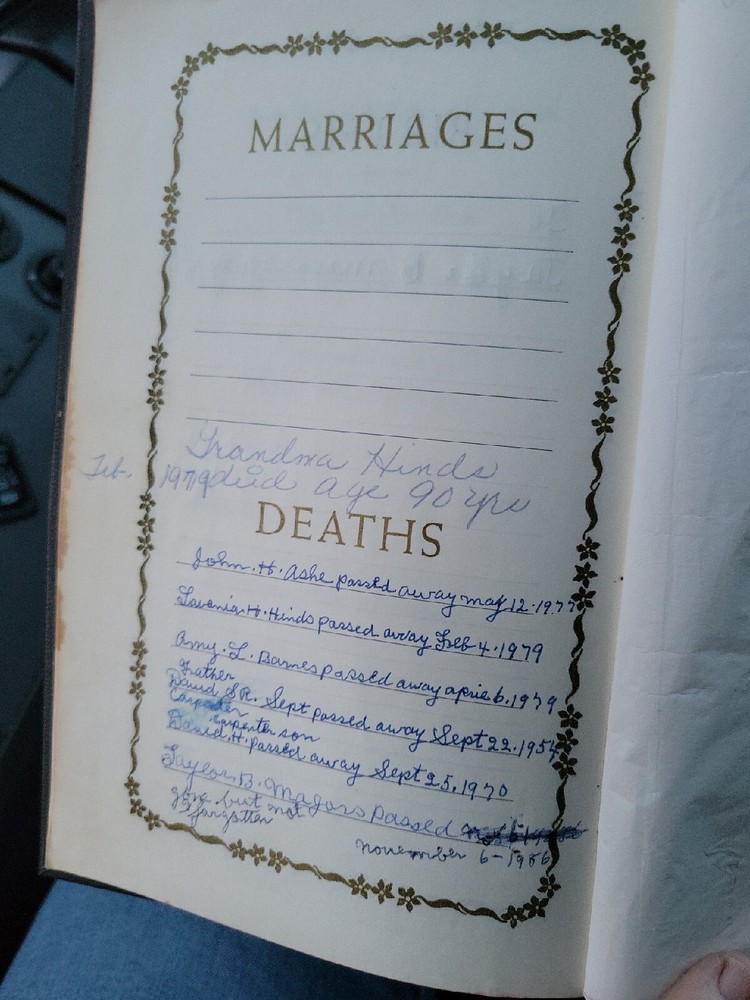 MARRIAGES
Grandma Hinds
Feb. 1979 died age 90 yrs
DEATHS
John. H. Ashe passed away may 12. 1977
H. Hinds passed away Feb 4. 1979
Amy. L. Barnes passed away aprie 6. 1979
Father
David SR. Sept passed away Sept 22. 1954
Carpenter
carpenter son
David. H. passed away Sept 25, 1970
Taylor. B. Magors passed
gone but not
forgotten
november 6-1986